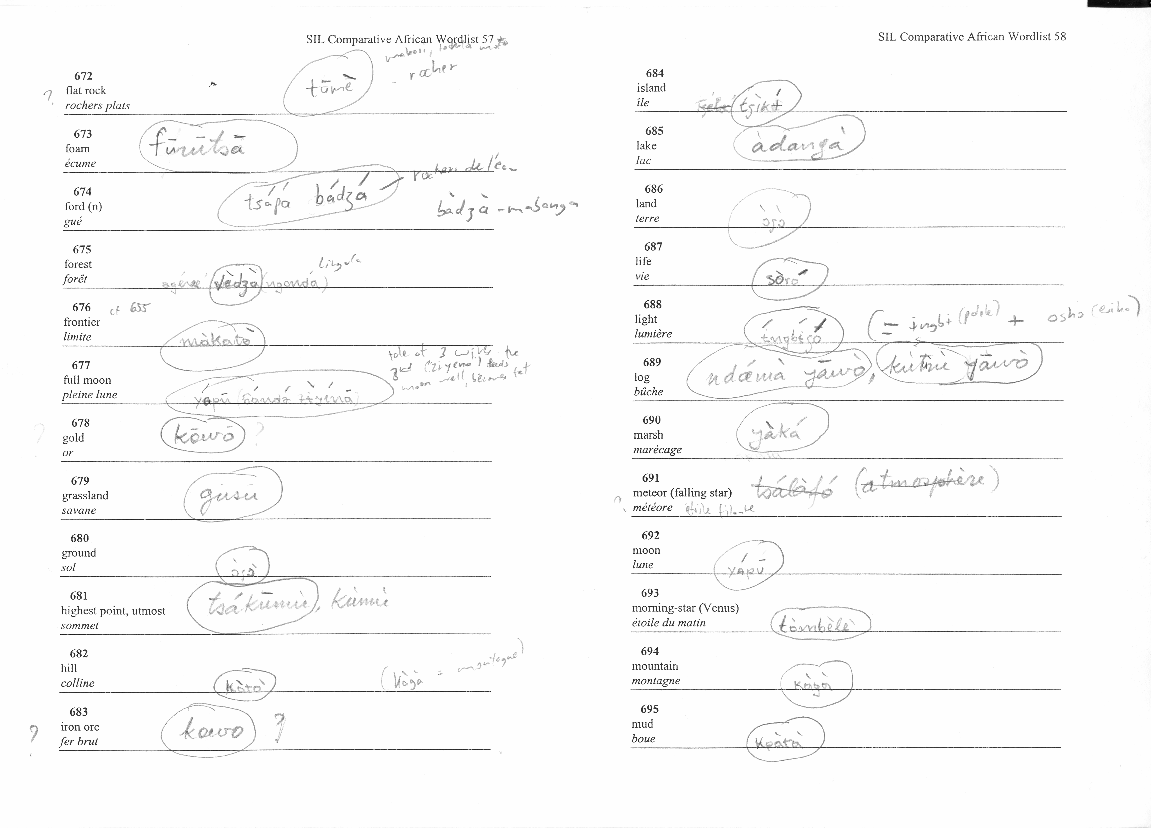 SIL Comparative African Wordlist 57
672
flat rock
rochers plats
? tūmɛ̀ - rocher
673
foam
écume
fūrūtsā
674
ford (n)
gué
tsápá bádzá rocher de l'eau
bàdzà - mabanga
675
forest
forêt
vɛ̀dzà (ngonda) lingala
676 cf 655
frontier
limite
màkàtò
677
full moon
pleine lune
yápū
tale of 3 wives, the
3rd feeds
moon well, becomes fat
678
gold
or
? kōwō ?
679
grassland
savane
gusu
680
ground
sol
ɔ̀ʒɔ̀
681
highest point, utmost
sommet
tsákūmù, kùmù
682
hill
colline
kàtà (kàgà = montagne)
683
iron ore
fer brut
? kowo ?
SIL Comparative African Wordlist 58
684
island
île
685
lake
lac
àdangà
686
land
terre
ɔ̀ʒɔ̀
687
life
vie
688
light
lumière
689
log
bûche
yāwò, yāwò
690
marsh
marécage
yàká
691
meteor (falling star)
météore étoile filante
? tsálàfó (atmosphère)
692
moon
lune
yápū
693
morning-star (Venus)
étoile du matin
tòmbèlè
694
mountain
montagne
kàgà
695
mud
boue
kpàtà